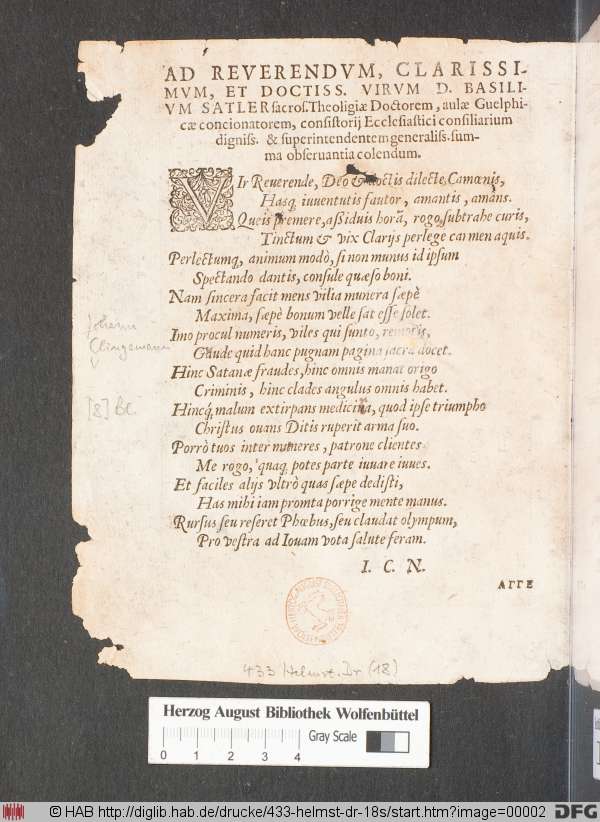 AD REVERENDVM, CLARISSI-
MVM, ET DOCTISS. VIRVM D. BASILI-
VM SATLER sacros. Theoligiæ Doctorem, aulæ Guelphi-
cæ concionatorem, consistorij Ecclesiastici consiliarium
digniss. & superintendentem generaliss. sum-
ma obseruantia colendum.
VIr Reuerende, Deo & doctis dilecte Camœnis,
Hasq iuuentutis fautor, amantis, amans.
Queis premere, assiduis horã, rogo, subtrahe curis,
Tinctum & vix Clarijs perlege carmen aquis.
Perlectumq, animum modò, si non munus id ipsum
Spectando dantis, consule quæso boni.
Nam sincera facit mens vilia munera sæpè
Maxima, sæpè bonum velle sat esse solet.
Imo procul numeris, viles qui sunto, remotis,
Gaude quid hanc pugnam pagina sacra docet.
Hinc Satanæ fraudes, hinc omnis manat origo
Criminis, hinc clades angulus omnis habet.
Hincq, malum extirpans medicina, quod ipse triumpho
Christus ouans Ditis ruperit arma suo.
Porrò tuos inter numeres, patrone clientes
Me rogo, quaq, potes parte iuuare iuues.
Et faciles alijs vltrò quas sæpe dedisti,
Has mihi iam promta porrige mente manus.
Rursus seu reseret Phœbus, seu claudat olympum,
Pro vestra ad Iouam vota salute feram.
I. C. N.
ATTE
Johann
Clingemann
[8] Bl.
433 Helmst. Dr (18)
Herzog August Bibliothek Wolfenbüttel
0 1 2 3 4
Gray Scale
© HAB http://diglib.hab.de/drucke/433-helmst-dr-18s/start.htm?image=00002
DFG